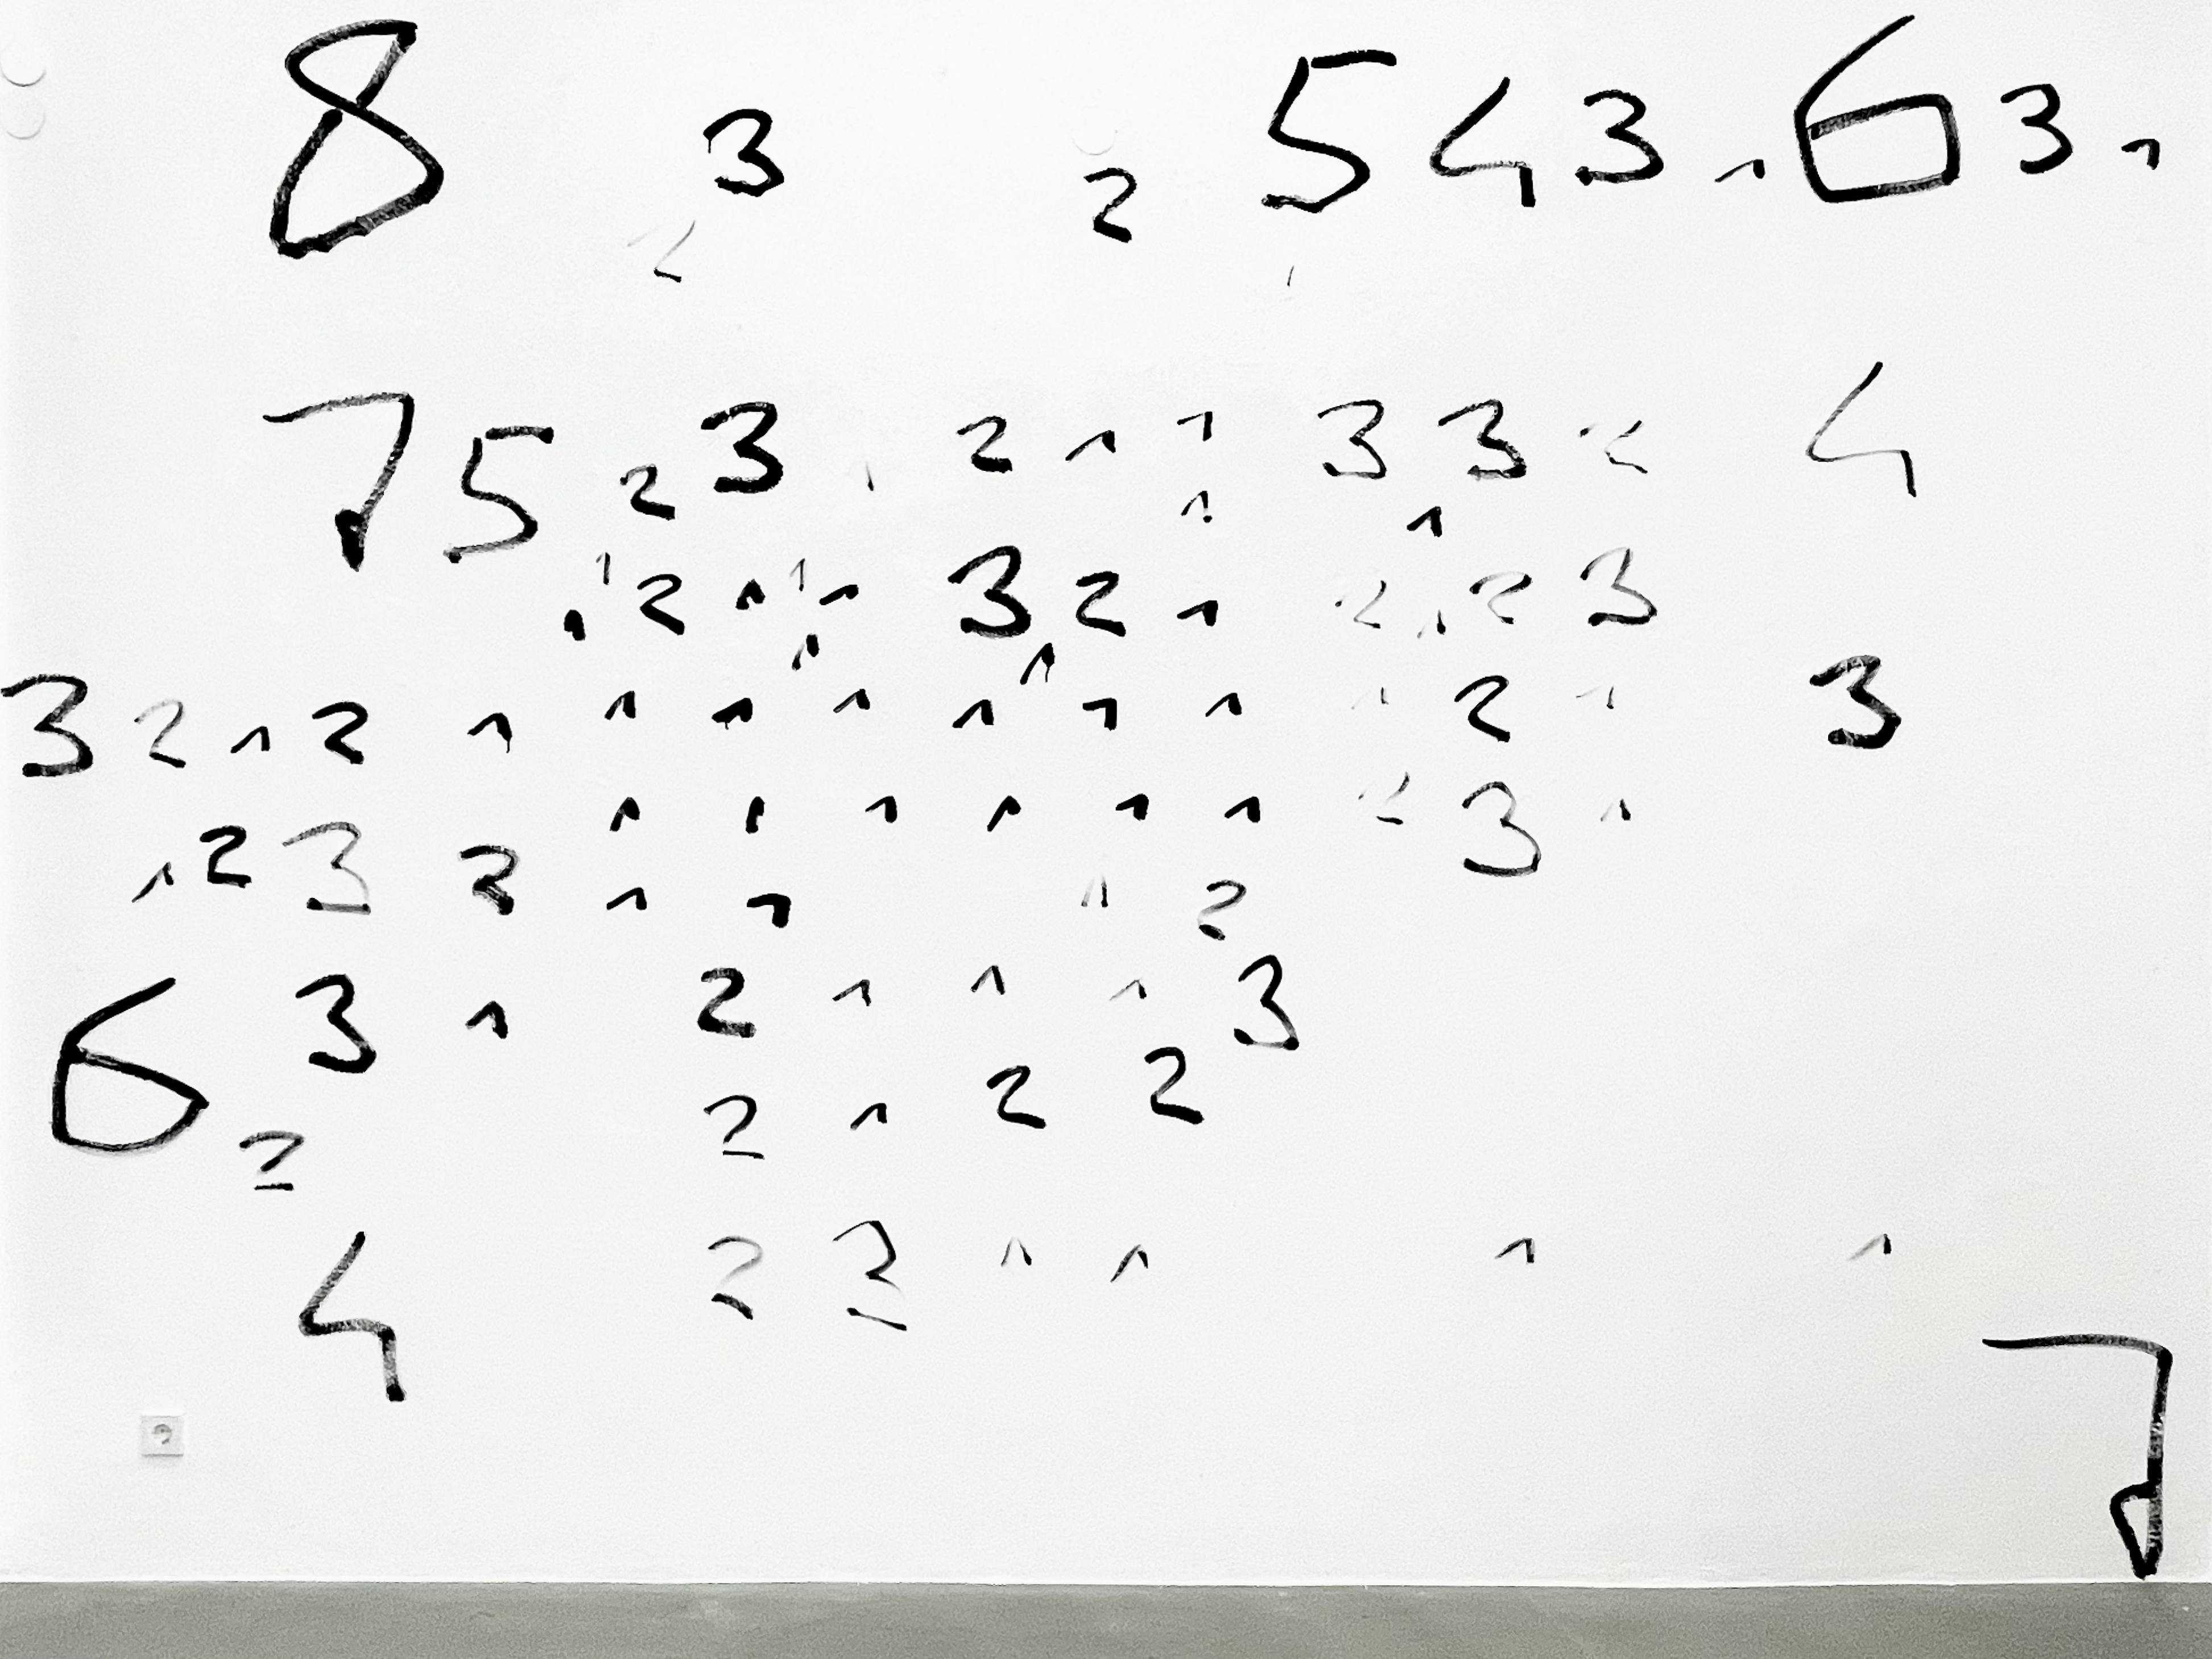 8 3 2 5 4 3 1 6 3 1
2 1
7 5 2 3 1 2 1 1 3 3 2 4
1 1
1 2 1 1 1 3 2 1 2 1 2 3
1 1 1
3 2 1 2 1 1 1 1 1 1 1 1 2 1 3
1 1 1 1 1 1 2 3 1
1 2 3 2 1 1 1 2
6 3 1 2 1 1 1 3
2 2 1 2 2
4 2 3 1 1 1 1
7